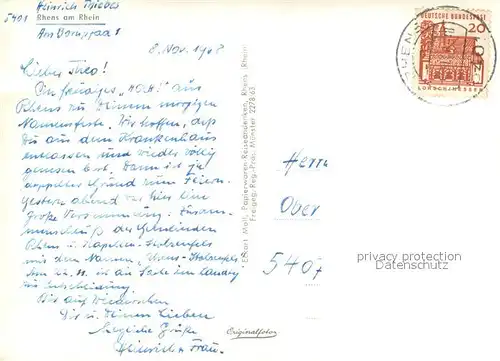 Heinrich Thieber
5401 Rhens am Rhein
Am Bornpfad 1
8. Nov. 1968
Lieber Theo!
Ein freudiges "HOCH" aus
Rhens zu Deinem morgigen
Namensfeste. Wir hoffen, daß
Du aus dem Krankenhaus
entlassen und wieder völlig
genesen bist. Dann ist ja
doppelter Grund zum Feiern.
Gestern abend war hier eine
große Versammlung: Zusam-
menschluß der Gemeinden
Rhens u. Kapellen-Stolzenfels
mit dem Namen "Rhens-Stolzenfels
Am 22.11. ist die Sache im Landtag
zur Entscheidung.
Bis auf Wiedersehen
Dir u. Deinen Lieben
herzliche Grüße
Heinrich u. Frau.
Effart Mall, Papierwaren-Reiseandenken, Rhens (Rhein)
Freigeg. Reg.-Präs. Münster 2278/65
Originalfoto
DEUTSCHE BUNDESPOST
20
LORSCH/HESSEN
RHENS
Herrn
Ober
5407
papierwaren
COPYRIGHT PROTECTED